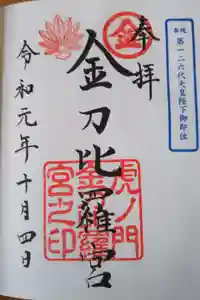 奉祝
第一二六代天皇陛下御即位
奉拝
金
金刀比羅宮
虎ノ門
金刀比羅
宮之印
令和元年十月四日